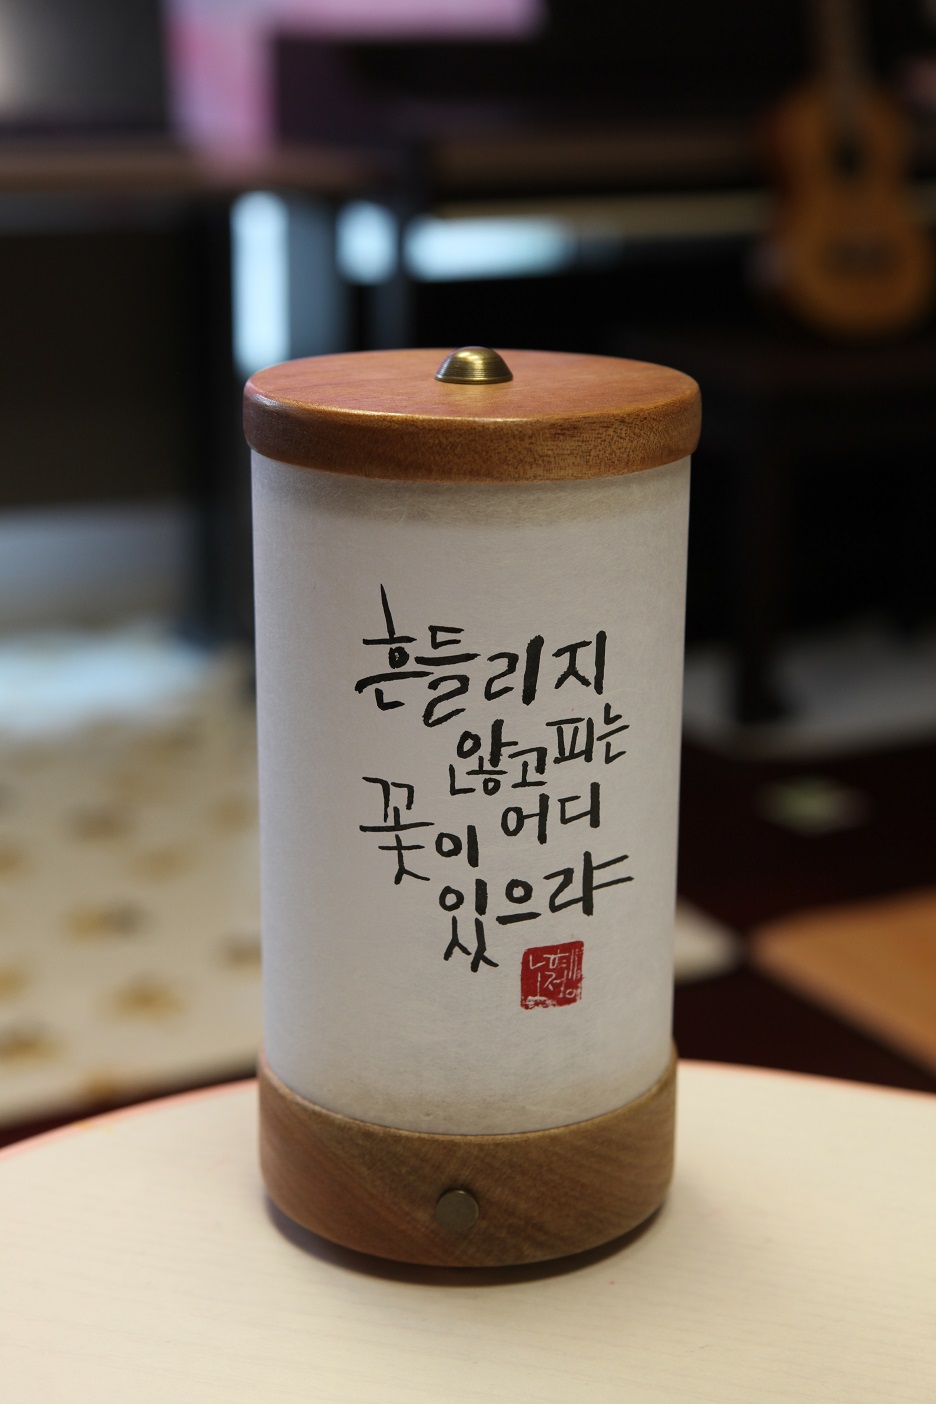 흔들리지
않고 피는
꽃이 어디
있으랴